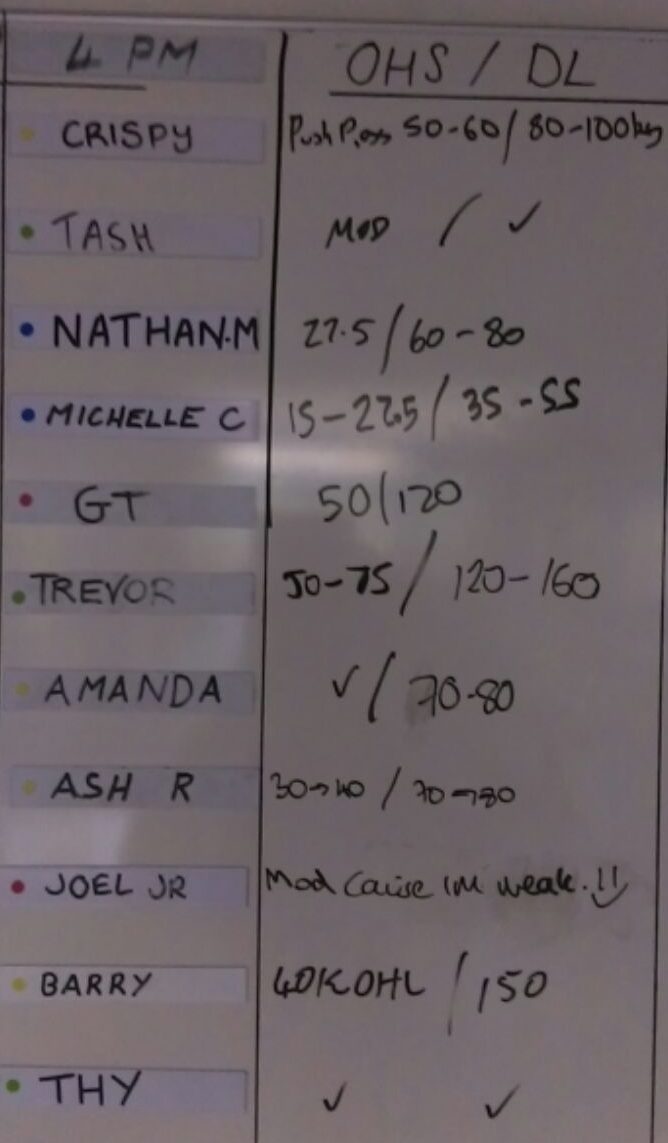 4 PM OHS / DL
CRISPY Push Press 50-60 / 80-100kg
TASH MOD / ✓
NATHAN.M 27.5 / 60-80
MICHELLE C 15-22.5 / 35-55
GT 50/120
TREVOR 50-75 / 120-160
AMANDA ✓ / 70-80
ASH R 30→40 / 70→80
JOEL JR Mod Cause im weak. !!
BARRY 40KOHL / 150
THY ✓ ✓